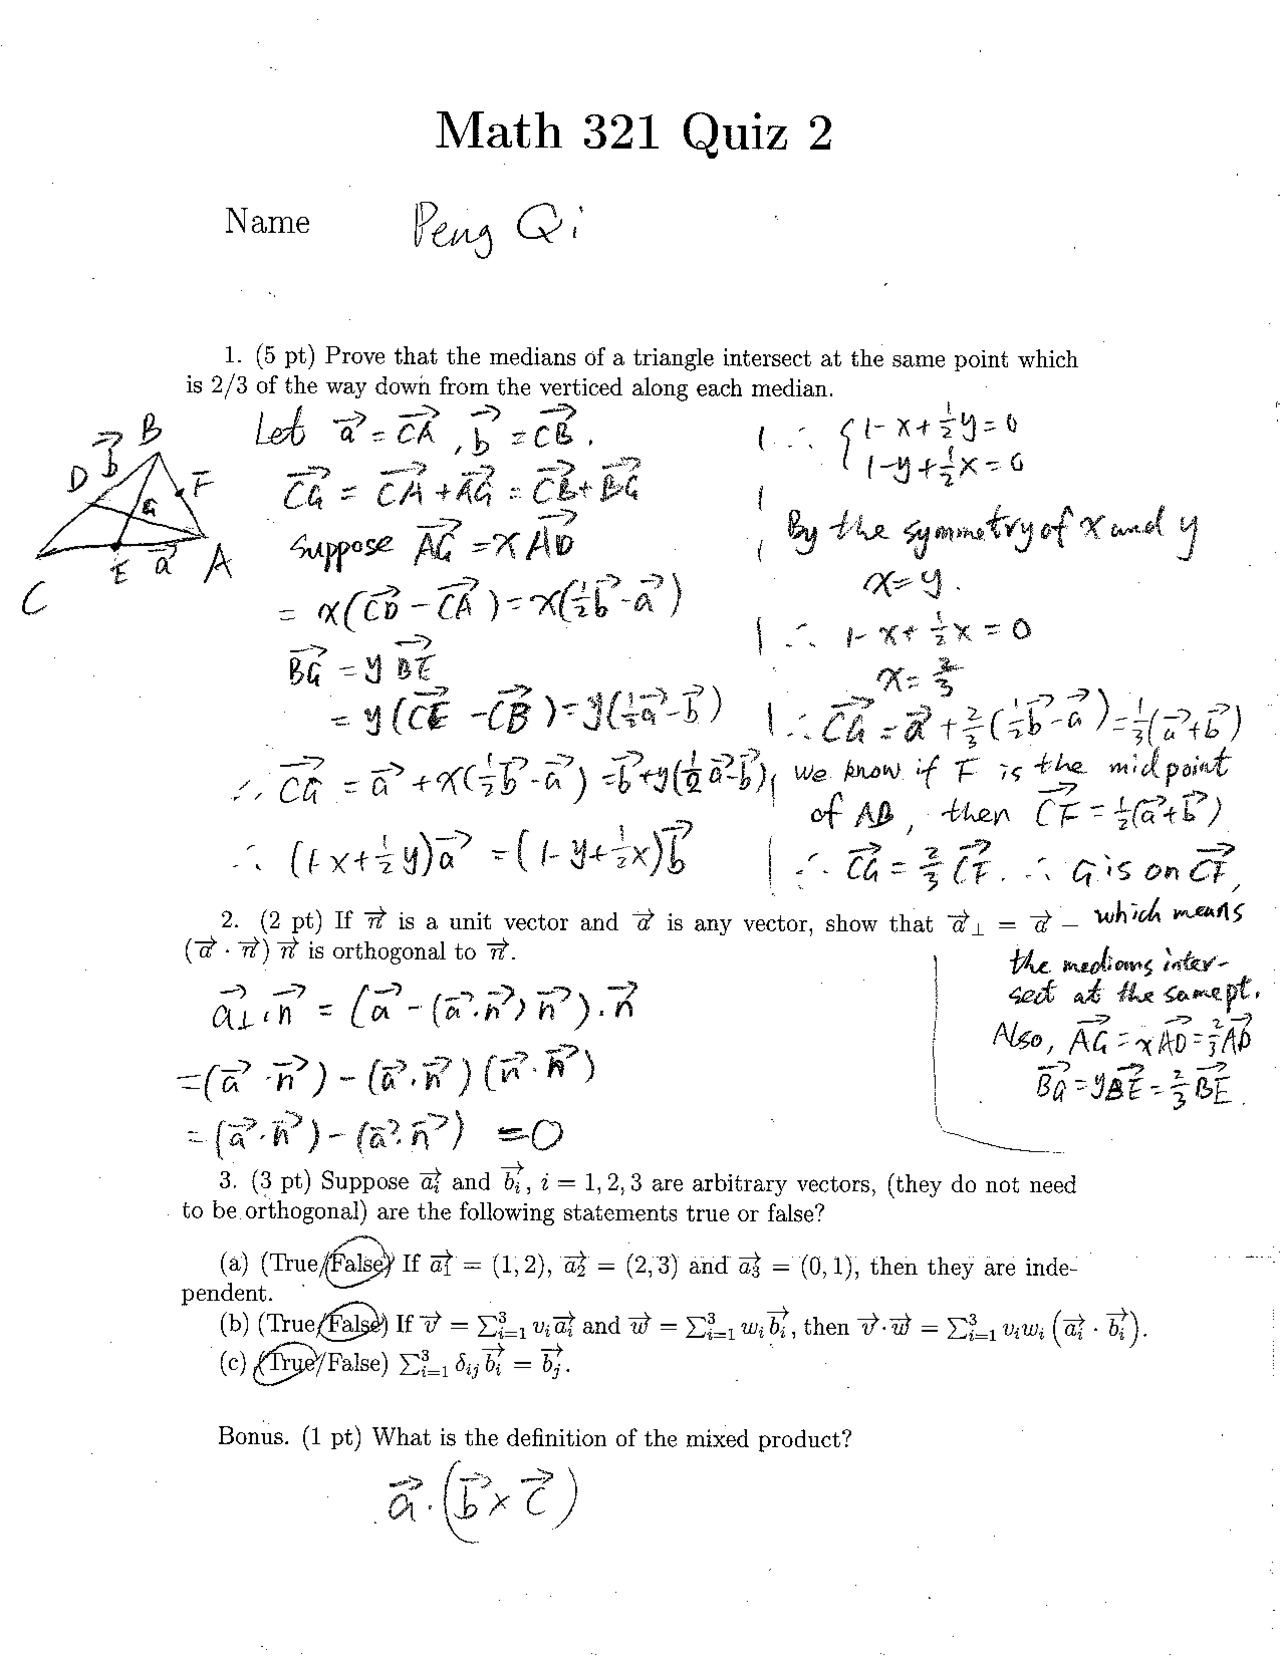 Math 321 Quiz 2
Name Peng Qi
1. (5 pt) Prove that the medians of a triangle intersect at the same point which
is 2/3 of the way down from the verticed along each median.
B
D b⃗ F
G
C E a⃗ A
Let a⃗ = CA⃗, b⃗ = CB⃗.
CG⃗ = CA⃗ + AG⃗ = CB⃗ + BG⃗
Suppose AG⃗ = x AD⃗
= x(CD⃗ - CA⃗) = x(½b⃗ - a⃗)
BG⃗ = y BE⃗
= y(CE⃗ - CB⃗) = y(½a⃗ - b⃗)
∴ CG⃗ = a⃗ + x(½b⃗ - a⃗) = b⃗ + y(½a⃗ - b⃗)
∴ (1-x+½y)a⃗ = (1-y+½x)b⃗
∴ { 1-x+½y=0
1-y+½x=0
By the symmetry of x and y
x=y.
∴ 1-x+½x=0
x=⅔
∴ CG⃗ = a⃗ + ⅔(½b⃗ - a⃗) = ⅓(a⃗+b⃗)
we know if F is the midpoint
of AB, then CF⃗ = ½(a⃗+b⃗)
∴ CG⃗ = ⅔ CF⃗. ∴ G is on CF⃗,
which means
the medians inter-
sect at the same pt.
Also, AG⃗ = x AD⃗ = ⅔ AD⃗
BG⃗ = y BE⃗ = ⅔ BE⃗.
2. (2 pt) If n⃗ is a unit vector and a⃗ is any vector, show that a⃗⊥ = a⃗ −
(a⃗ · n⃗) n⃗ is orthogonal to n⃗.
a⃗⊥ · n⃗ = (a⃗ - (a⃗·n⃗) n⃗) · n⃗
= (a⃗ · n⃗) - (a⃗·n⃗)(n⃗·n⃗)
= (a⃗·n⃗) - (a⃗·n⃗) = 0
3. (3 pt) Suppose a⃗ᵢ and b⃗ᵢ, i = 1, 2, 3 are arbitrary vectors, (they do not need
to be orthogonal) are the following statements true or false?
(a) (True/False) If a⃗₁ = (1, 2), a⃗₂ = (2, 3) and a⃗₃ = (0, 1), then they are inde-
pendent.
(b) (True/False) If v⃗ = ∑³ᵢ₌₁ vᵢa⃗ᵢ and w⃗ = ∑³ᵢ₌₁ wᵢb⃗ᵢ, then v⃗·w⃗ = ∑³ᵢ₌₁ vᵢwᵢ (a⃗ᵢ · b⃗ᵢ).
(c) (True/False) ∑³ᵢ₌₁ δᵢⱼb⃗ᵢ = b⃗ⱼ.
Bonus. (1 pt) What is the definition of the mixed product?
a⃗·(b⃗ × c⃗)